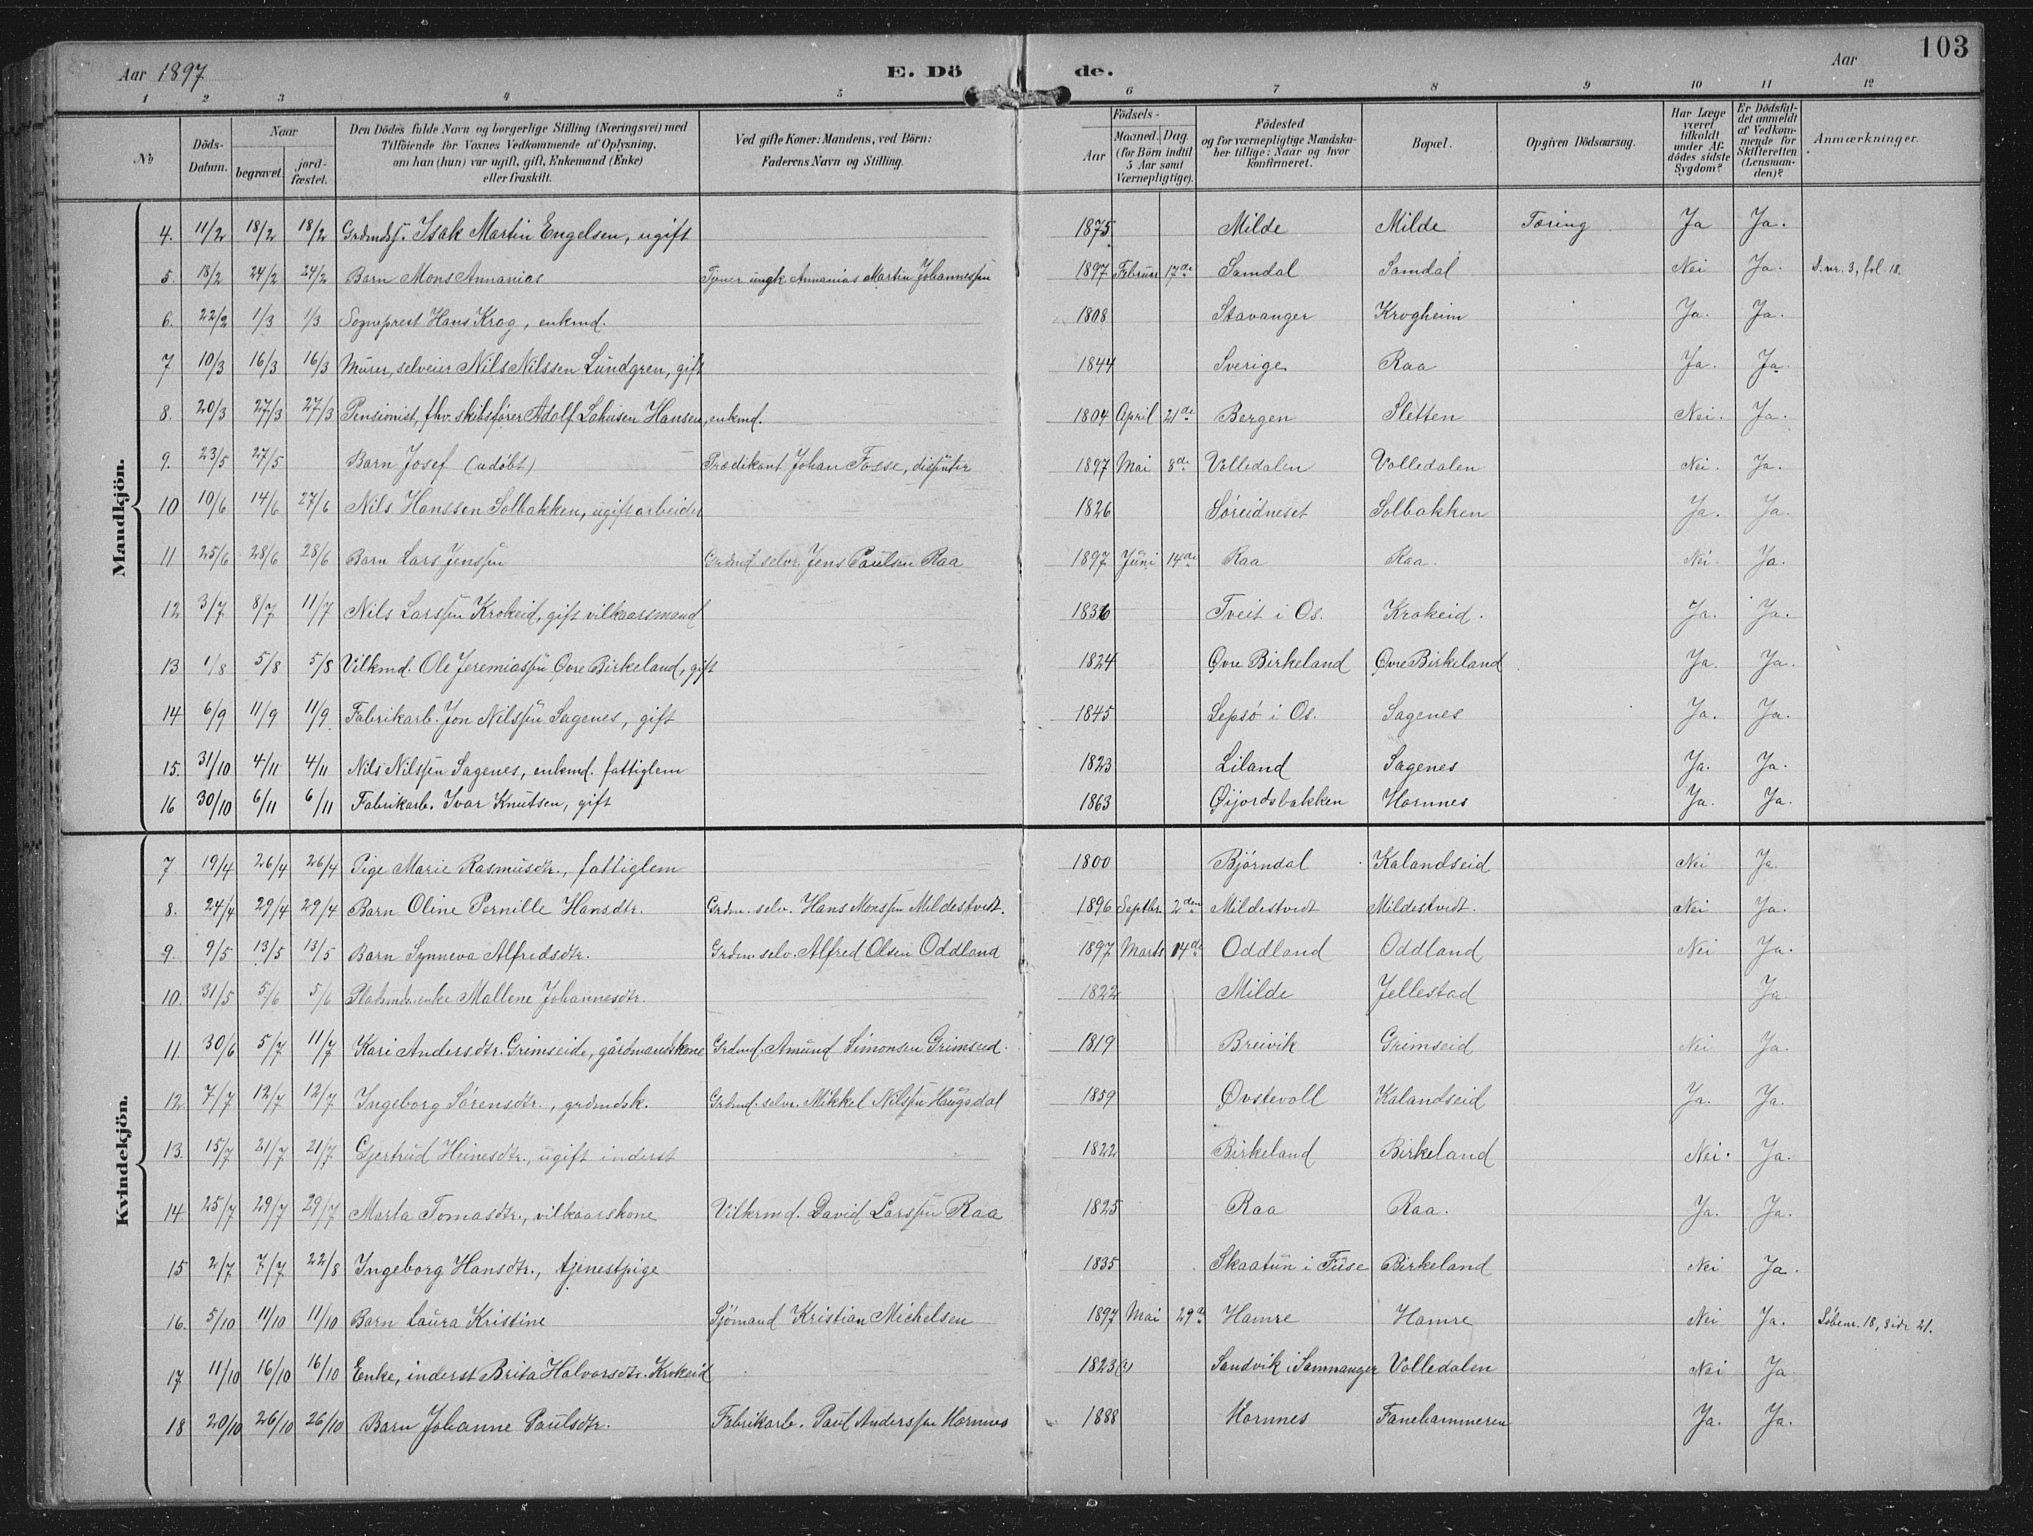 103
Aar 1897 E. Dö de. Aar
1 2 3 4 5 6 7 8 9 10 11 12
No
Döds-Datum.
Naar
begravet.
jord-fæstet.
Den Dödes fulde Navn og borgerlige Stilling (Næringsvei) med
Tilföiende for Voxnes Vedkommende af Oplysning,
om han (hun) var ugift, gift, Enkemand (Enke)
eller fraskilt.
Ved gifte Koner: Mandens, ved Börn:
Faderens Navn og Stilling.
Födsels-
Aar
Maaned. Dag.
(for Börn indtil
5 Aar samt
Værnepligtige).
Födested
og for værnepligtige Mandska-
ber tillige: Naar og hvor
konfirmeret.
Bopæl.
Opgiven Dödsaarsag.
Har Læge
været
tilkaldt
under Af-
dödes sidste
Sygdom?
Er Dödsfal-
det anmeldt
af Vedkom-
mende for
Skifteretten
(Lensman-
den)?
Anmærkninger.
Mandkjön.
4. 11/2 18/2 18/2 Grdmdss. Isak Martin Engelsen, ugift 1875 Milde Milde Tæring Ja Ja.
5. 18/2 24/2 24/2 Barn Mons Annanias Tjener ungk Annanias Martin Johannessen 1897 Februar 17de Samdal Samdal Nei Ja. D. nr. 3, fol 18.
6. 22/2 1/3 1/3 Sogneprest Hans Krog, enkmd. 1808 Stavanger Krogheim Ja. Ja.
7 10/3 16/3 16/3 Murer, selveier Nils Nilssen Lundgren, gift 1844 Sverige Raa Ja. Ja.
8. 20/3 27/3 27/3 Pensionist, fhv. skibsfører Adolf Lahusen Hansen, enkmd. 1804 April 21de Bergen Sletten Nei. Ja.
9. 23/5 27/5 Barn Josef (udøbt) Prædikant Johan Fosse, 1897 Mai 8de Volledalen Volledalen Nei. Ja.
10 10/6 14/6 27/6 Nils Hanssen Solbakken, ugift arbeider 1826 Søreidneset Solbakken Ja. Ja.
11 25/6 28/6 28/6 Barn Lars Jenssen Grdmd selvr. Jens Paulsen Raa 1897 Juni 14de Raa Raa. Nei. Ja.
12 3/7 8/7 11/7 Nils Larssen Krokeid, gift vilkaarsmand 1836 Tveit i Os. Krokeid. Ja. Ja.
13 1/8 5/8 5/8 Vilkmd. Ole Jeremiassen Øvre Birkeland, gift 1824 Øvre Birkeland Øvre Birkeland Ja. Ja.
14 6/9 11/9 11/9 Fabrikarb. Jon Nilssen Sagenes, gift 1845 Lepsø i Os. Sagenes Ja. Ja.
15. 31/10 4/11 4/11 Nils Nilssen Sagenes, enkmd. fattiglem 1823 Liland Sagenes Ja. Ja.
16 30/10 6/11 6/11 Fabrikarb. Ivar Knutsen, gift 1863 Øijordsbakken Hornnes Ja. Ja.
Kvindekjön.
7 19/4 26/4 26/4 Pige Marie Rasmusdtr., fattiglem 1800 Bjørndal Kalandseid Nei Ja.
8. 24/4 29/4 29/4 Barn Oline Pernille Hansdtr. Grdm. selv. Hans Monssen Mildestvedt. 1896 Septbr. 2den Mildestvedt Mildestvedt. Nei Ja.
9. 9/5 13/5 13/5 Barn Synneva Alfredsdtr. Grdm. selv. Alfred Olsen Oddland 1897 Marts 14de Oddland Oddland Nei Ja.
10. 31/5 5/6 5/6 Pladsmdsenke Mallene Johannesdtr. 1822 Milde Jellestad Ja.
11. 30/6 5/7 11/7 Kari Andersdtr. Grimseide, gårdmandskone Grdmd. Amund Simonsen Grimseid. 1819 Breivik Grimseid Nei Ja.
12. 7/7 12/7 12/7 Ingeborg Sørensdtr., grdmdsk. Grdmd. selvr. Mikkel Nilssen Haugsdal 1859 Øvstevoll Kalandseid Ja. Ja.
13. 15/7 21/7 21/7 Gjertrud Heinesdtr., ugift inderst 1822 Birkeland Birkeland Nei. Ja.
14 25/7 29/7 29/7 Marta Tomasdtr., vilkaarskone Vilkrmd. David Larssen Raa 1825 Raa Raa. Ja. Ja.
15 2/7 7/7 22/8 Ingeborg Hansdtr., tjenestpige 1835 Skaatun i Fuse Birkeland Nei Ja.
16. 5/10 11/10 11/10 Barn Laura Kristine Sjømand Kristian Michelsen 1897 Mai 29de Hamre Hamre Nei Ja. Løbenr. 18, side 21.
17 11/10 16/10 16/10 Enke, inderst Brita Halvorsdtr. Krokeid 1823(?) Sandvik i Samnanger Volledalen Nei Ja.
18 20/10 26/10 26/10 Barn Johanne Paulsdtr. Fabrikarb. Paul Anderssen Hornnes 1888 Hornnes Fanehammeren Ja. Ja.